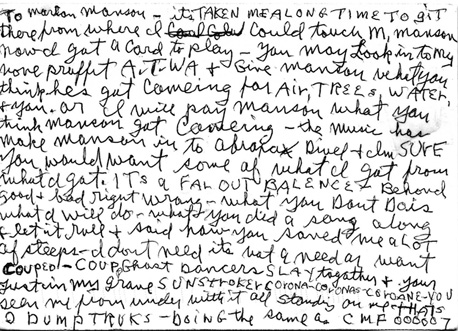 To Marlon Manson – its TAKEN ME ALONG TIME TO GIT
there from where I could touch M. Manson
now I got a card to play – You may look in to my
non proffit A.T.W.A. + Give Manson what you
think hes got comeing for Air, TREES, WATER,
+ you. or I will pay Manson what you
think Manson got comeing – the music has
make Manson in to abraxas Divel + Im SURE
you would want some of what I got from
what I got. IT'S a FAR OUT BALENCE + Behond
good + bad right wrong – what you Dont Do is
what I will do – what you did a song along
+ let it rull + said how you saved me a LOT
of steeps – I dont need it, its not a need or want
Couped – COUP Ghost Dancers SLAY together + your
Just in my grave SUNSTROKER CORONA-
seen me from under with it all standing on me THATS
2 DUMP TRUKS – DOING THE same AS CMF 000007